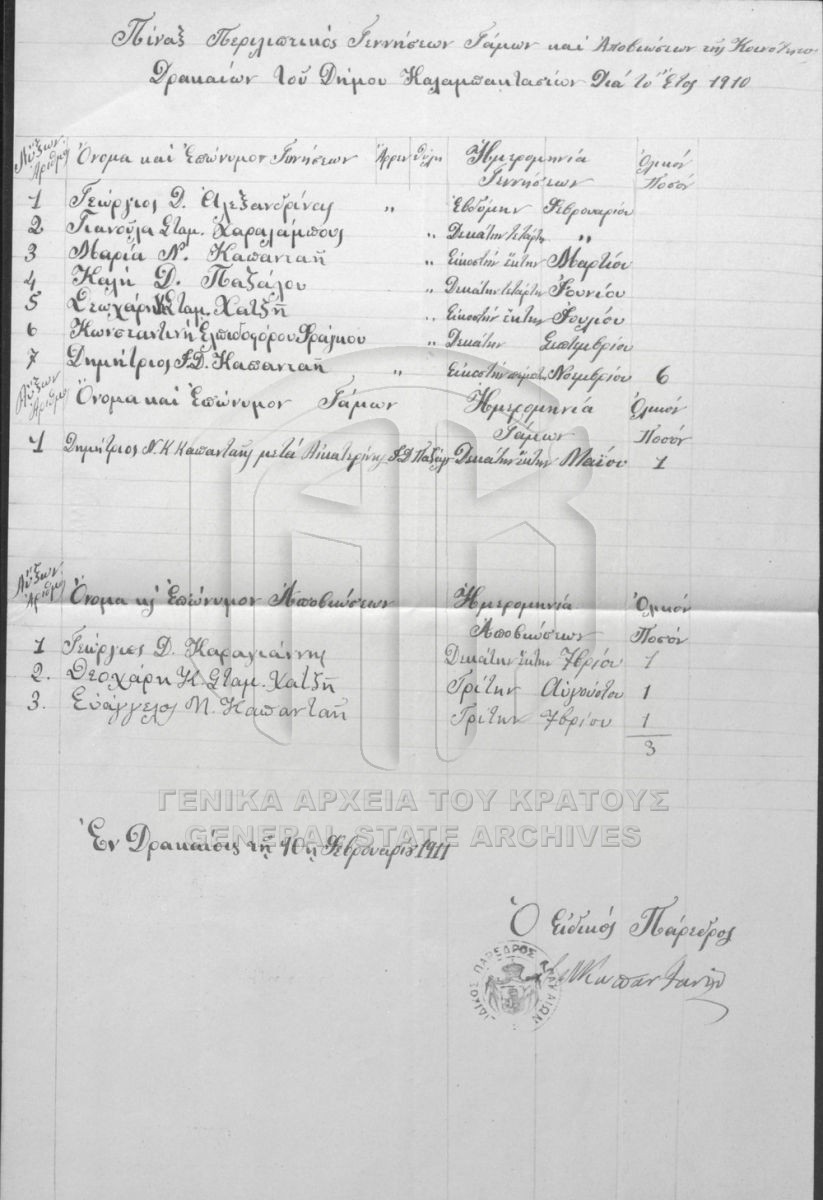 Πίναξ Περιληπτικός Γεννήσεων Γάμων καί Αποβιώσεων τῆς Κοινότητος
Δρακαίων τοῦ Δήμου Καλαμπακτασίων Διά τό Ἔτος 1910
Αὔξων Ἀριθμός Ὄνομα καί Ἐπώνυμον Γεννήσεων Ἄρρεν Θῆλυ Ἡμερομηνία Γεννήσεων Ὁλικόν Ποσόν
1 Γεώργιος Δ. Ἀλεξανδρίνας " Ἑβδόμην Φεβρουαρίου
2 Γιανούλα Σταμ. Χαραλάμπους " Δεκάτην τετάρτην "
3 Μαρία Ν. Καπανταῆ " Εἰκοστήν ἕκτην Μαρτίου
4 Καλή Δ. Παζάλου " Δεκάτην τετάρτην Ἰουνίου
5 Σταμ. Χατζῆ " Εἰκοστήν ἕκτην Ἰουλίου
6 Κωνσταντινή Ἐλπιδοφόρου Φράγκου " Δεκάτην Σεπτεμβρίου
7 Δημήτριος Ι.Δ. Καπανταῆ " Εἰκοστήν πέμπτην Νοεμβρίου 6
Αὔξων Ἀριθμός Ὄνομα καί Ἐπώνυμον Γάμων Ἡμερομηνία Γάμων Ὁλικόν Ποσόν
1 Δημήτριος Ν. Κ Καπανταῆς μετά Αἰκατερίνης Ι.Δ. Παζάλου Δεκάτην ἕκτην Μαΐου 1
Αὔξων Ἀριθμός Ὄνομα κ Ἐπώνυμον Ἀποβιώσεων Ἡμερομηνία Ἀποβιώσεων Ὁλικόν Ποσόν
1 Γεώργιος Δ. Καραγιάννης Δεκάτην ἕκτην 7βρίου 1
2. Θεοχάρη Κ. Σταμ. Χατζῆ Τρίτην Αὐγούστου 1
3. Εὐάγγελος Μ. Καπανταῆ Τρίτην 7βρίου 1
3
ΓΕΝΙΚΑ ΑΡΧΕΙΑ ΤΟΥ ΚΡΑΤΟΥΣ
GENERAL STATE ARCHIVES
Ἐν Δρακαίοις τῇ 10ῃ Φεβρουαρίου 1911
Ὁ Εἰδικός Πάρεδρος
ΕΙΔΙΚΟΣ ΠΑΡΕΔΡΟΣ ΔΡΑΚΑΙΩΝ